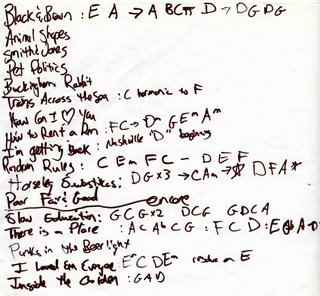 Black & Brown : E A → A BCπ D → DG DG
Animal Shapes
Smith & Jones
Pet Politics
Buckingham Rabbit
Trains Across the Sea : C harmonic to F
How Can I ♡ You
How to Rent a Room : FC → Dm G Em Am
I'm getting Back : Nashville "D" beginning
Random Rules : C Em F C - D E F
Horseleg Swastikas : DG x 3 → C Am → D F A
Poor Fair & Good
encore
Slow Education : G C G x 2 D C G G D C A
There is a Place : A C A b C G : F C D : E A D
Punks in the Beerlight
I Loved Em Europe Em C D Em on E
Inside the Golden : G A D